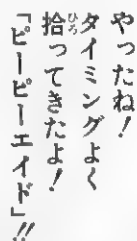 やったね！
タイミングよく
拾ってきたよ！
「ピーピーエイド」!!